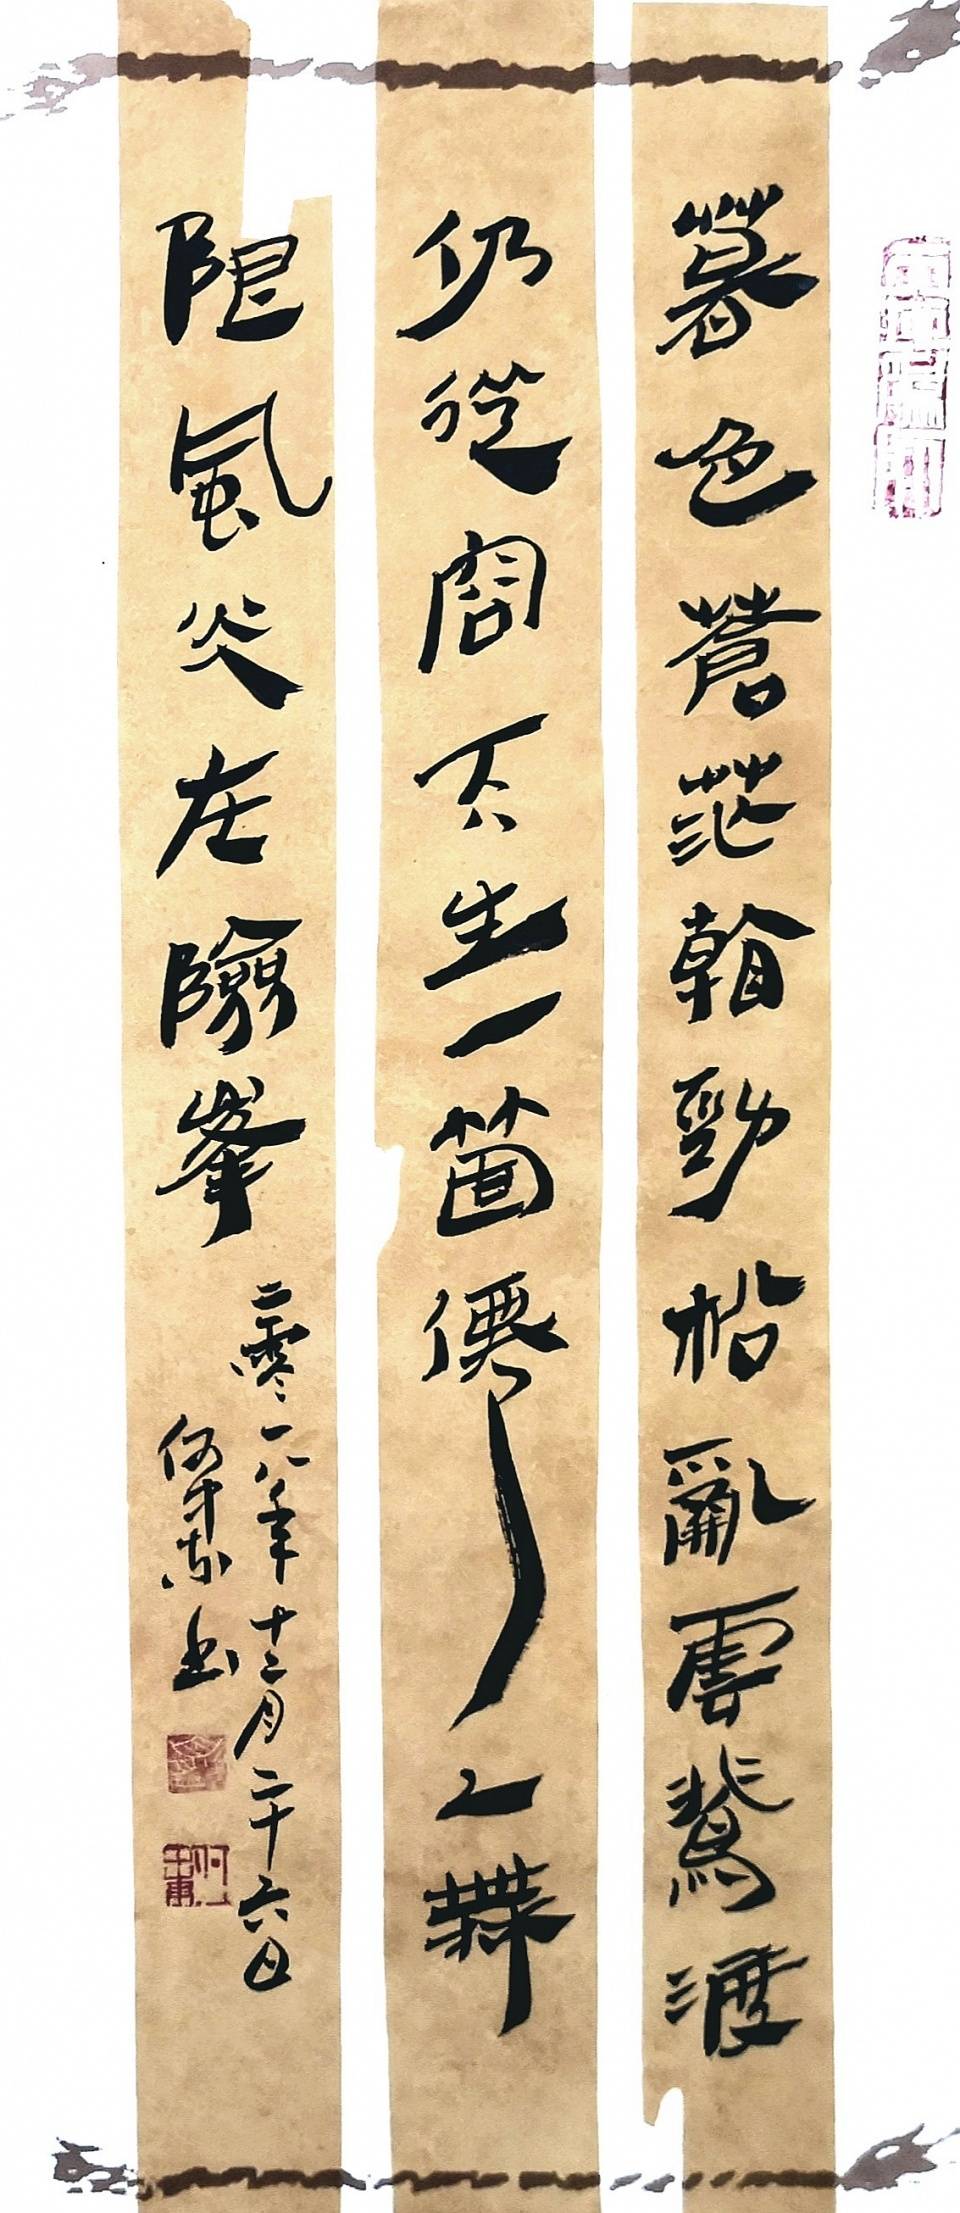 暮色蒼茫看勁松亂雲飛渡
仍從容天生一箇僊人無
限風光在險峯
二零一八年十二月二十六日
何書